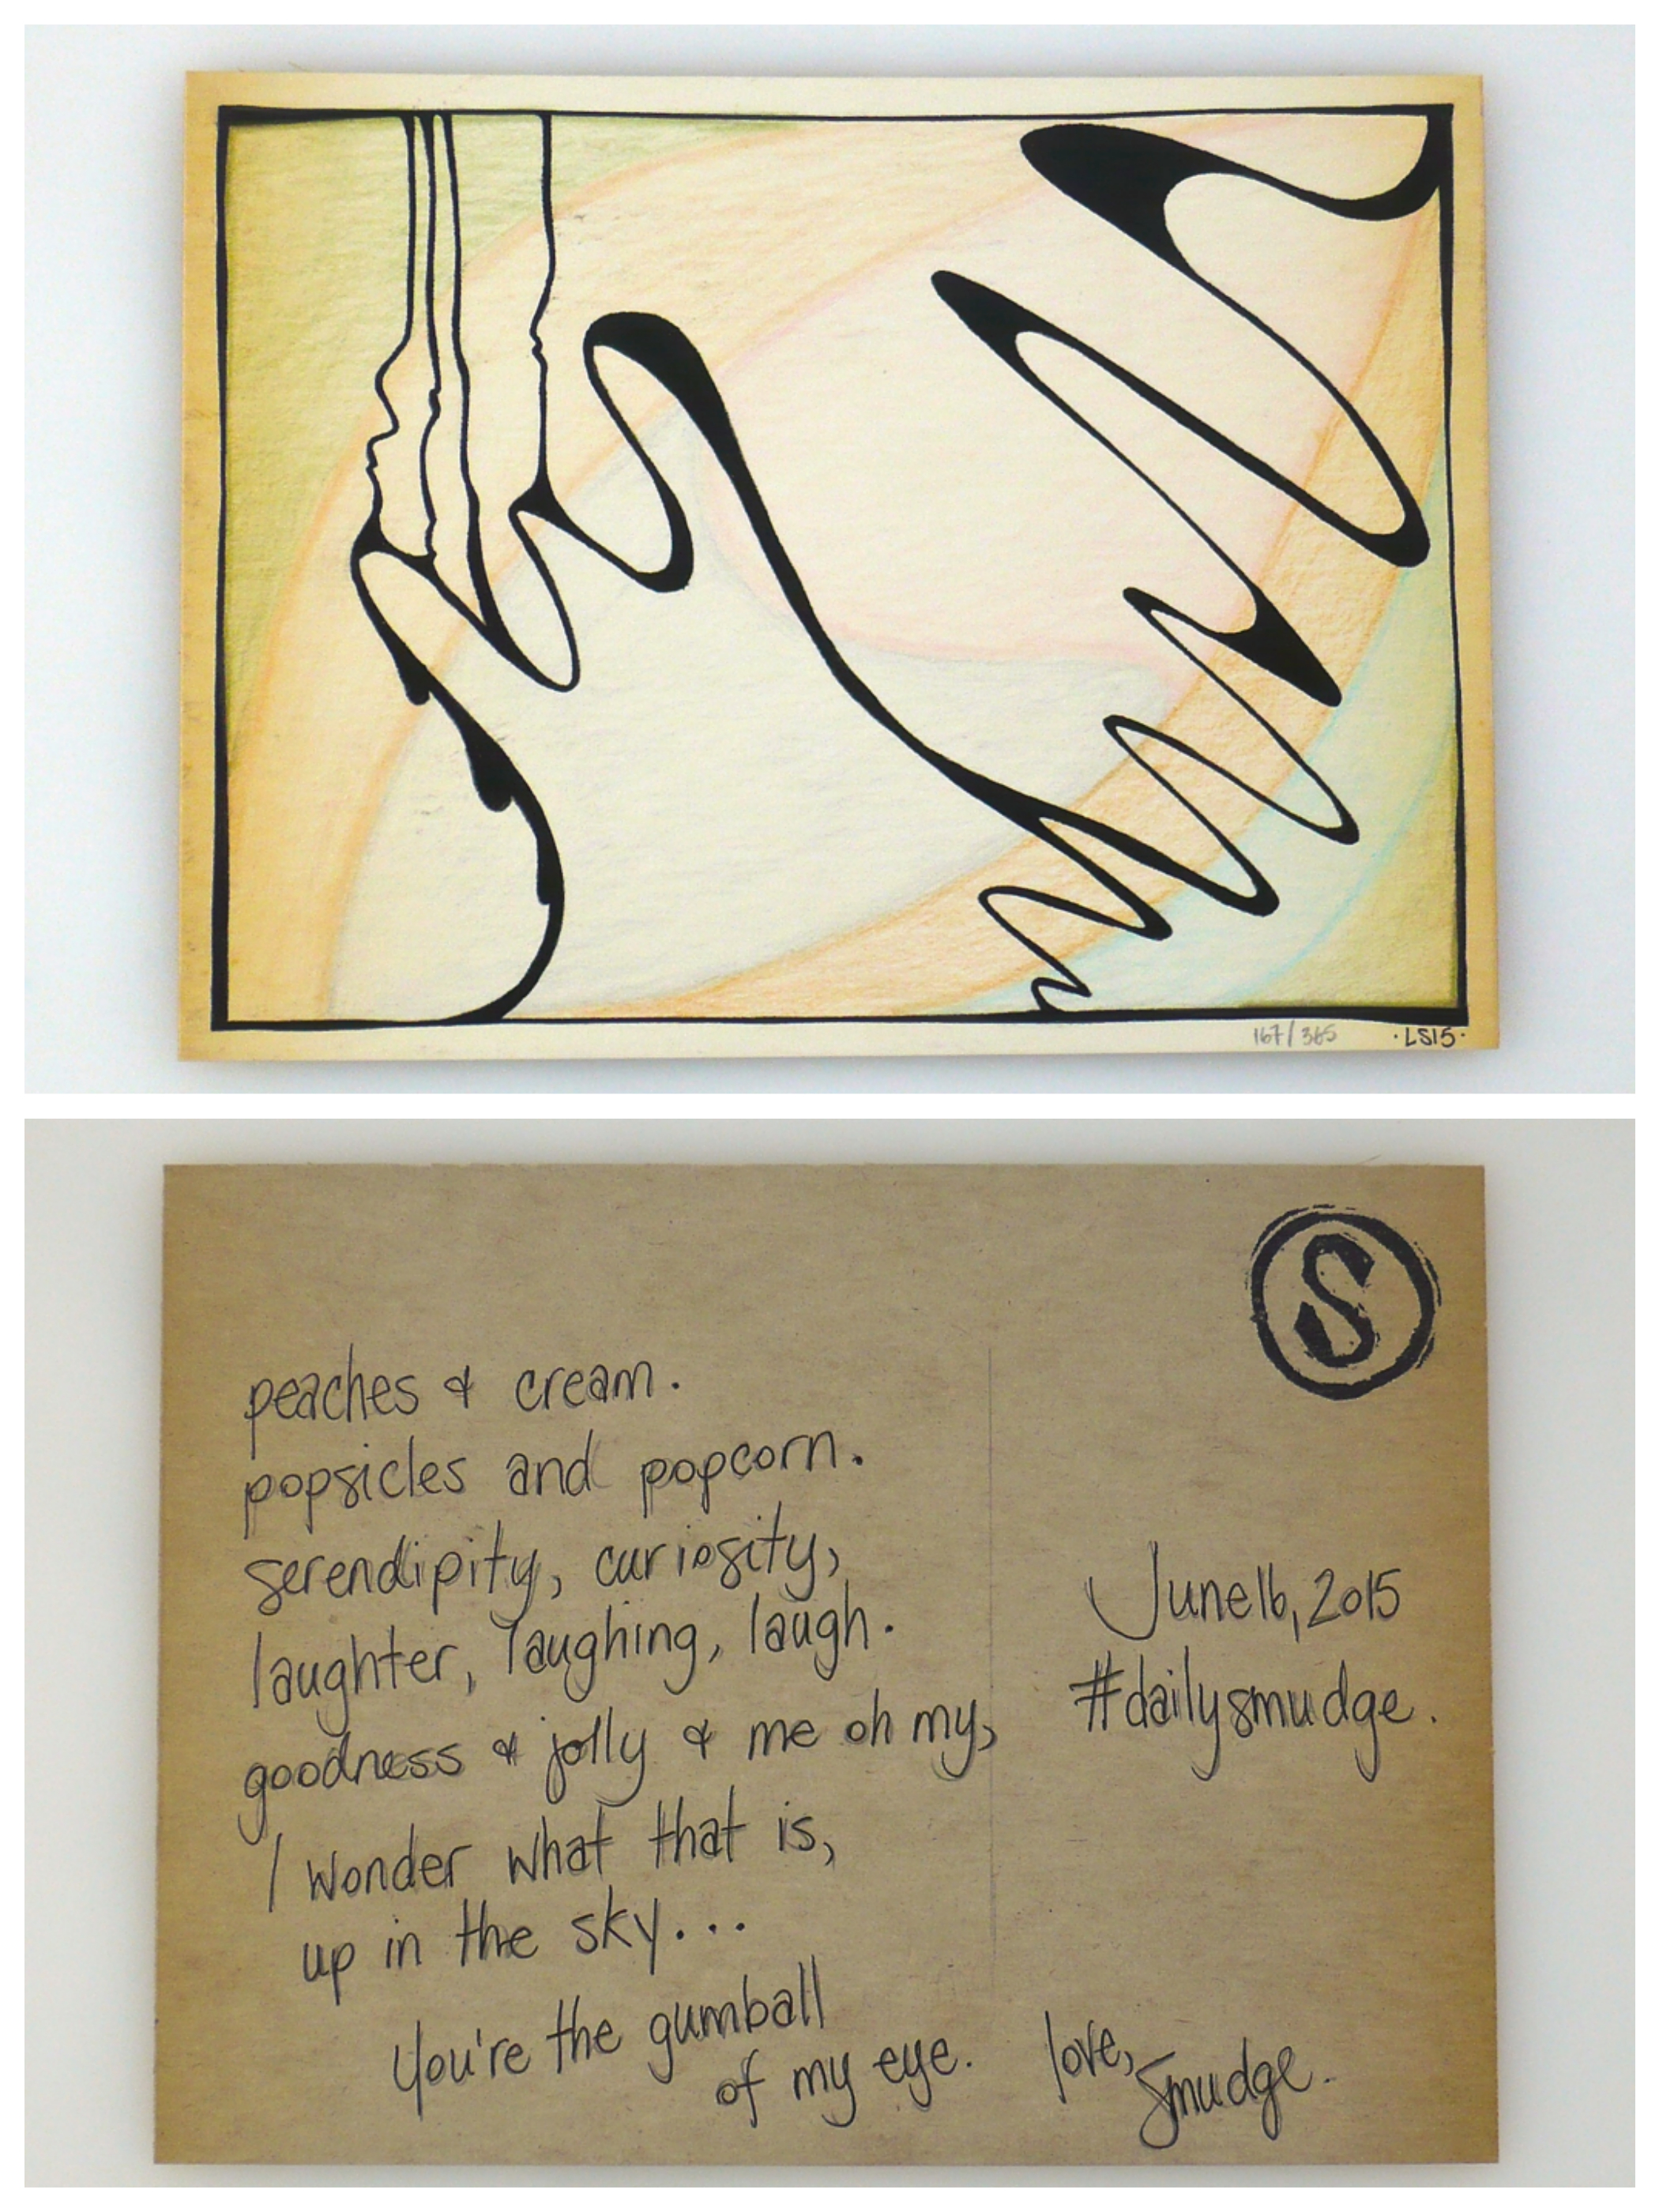 167/365 ·LS15·
S
peaches & cream.
popsicles and popcorn.
serendipity, curiosity,
laughter, laughing, laugh.
goodness & jolly & me oh my,
I wonder what that is,
up in the sky...
You're the gumball
of my eye.
June 16, 2015
#dailysmudge.
love,
Smudge.